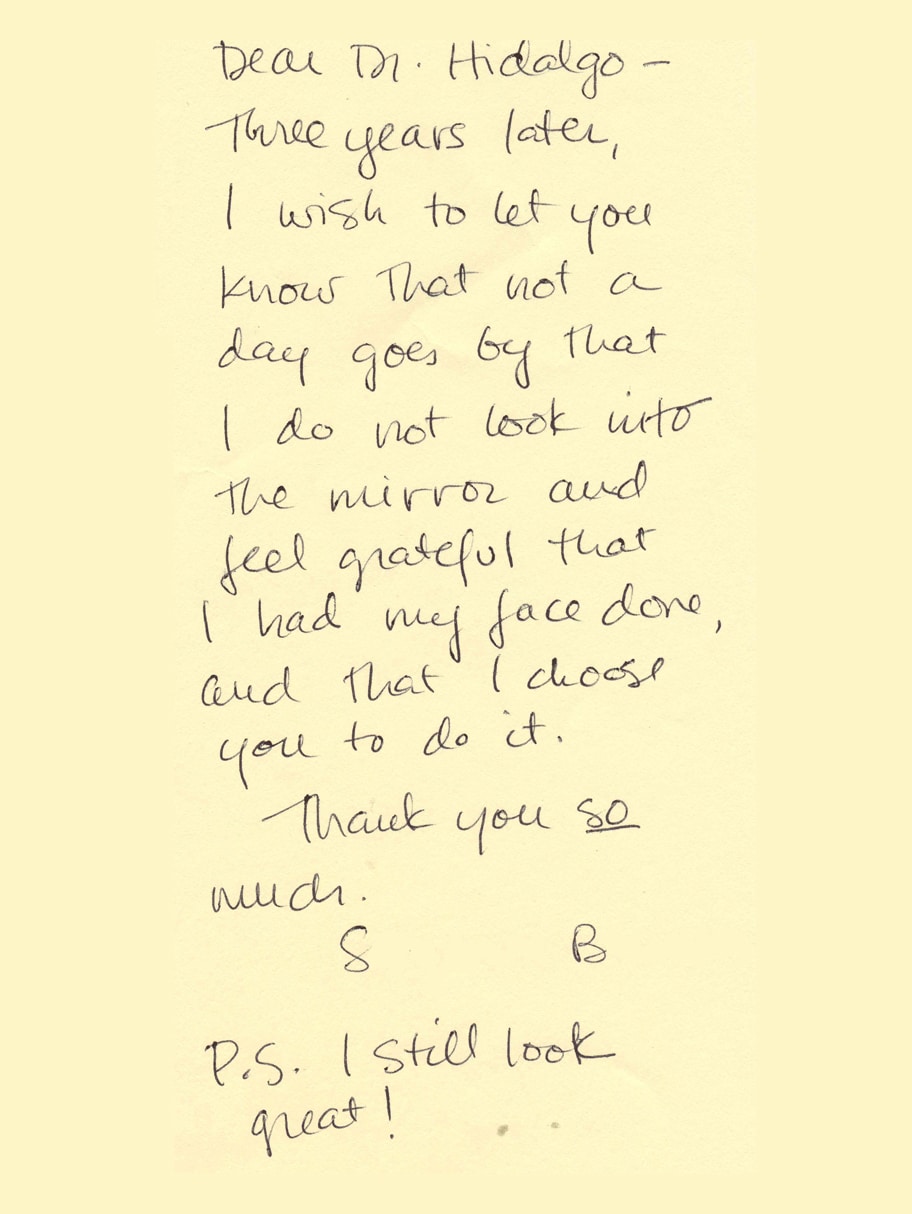 Dear Dr. Hidalgo –
Three years later,
I wish to let you
know that not a
day goes by that
I do not look into
the mirror and
feel grateful that
I had my face done,
and that I choose
you to do it.
Thank you so
much.
S B
P.S. I still look
great!